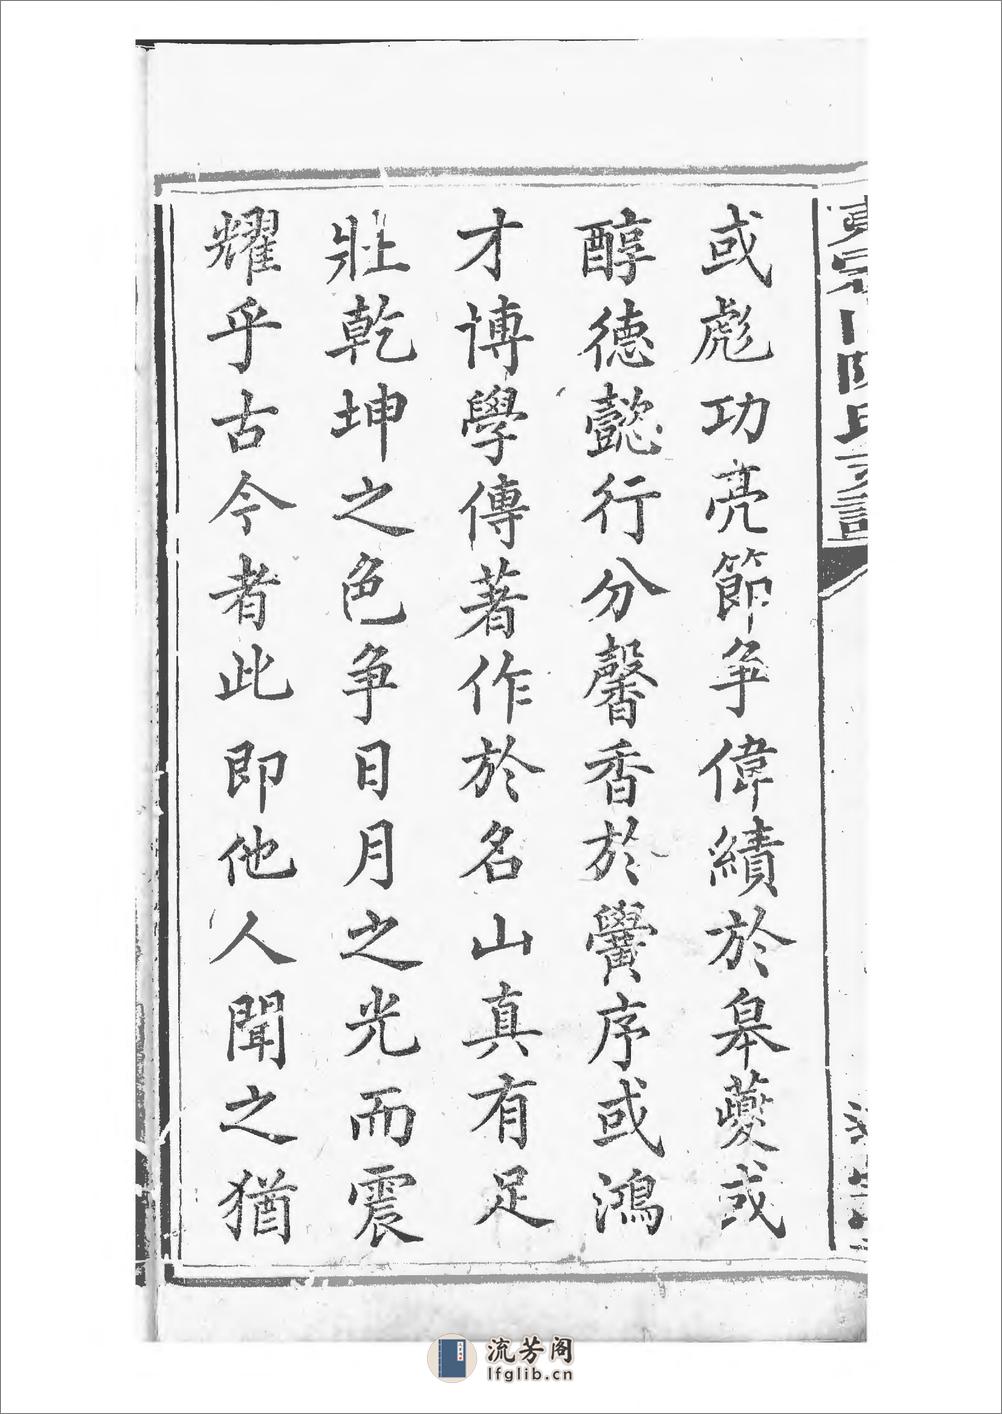 或彪功亮節争偉績於皋夔或
醇德懿行分馨香於黌序或鴻
才博學傳著作於名山真有足
壯乾坤之色争日月之光而震
耀乎古今者此即他人聞之猶
流芳阁
lfglib.cn